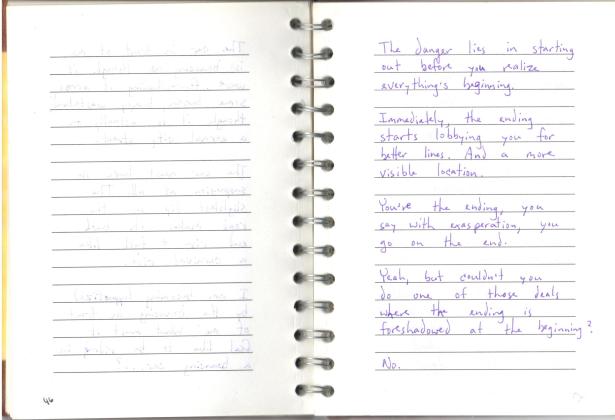 46
The danger lies in starting
out before you realize
everything's beginning.
Immediately, the ending
starts lobbying you for
better lines. And a more
visible location.
You're the ending, you
say with exasperation, you
go on the end.
Yeah, but couldn't you
do one of those deals
where the ending is
foreshadowed at the beginning?
No.